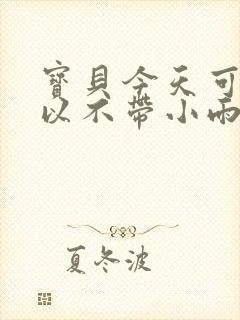 寶貝今天可
以不帶小雨
夏冬波